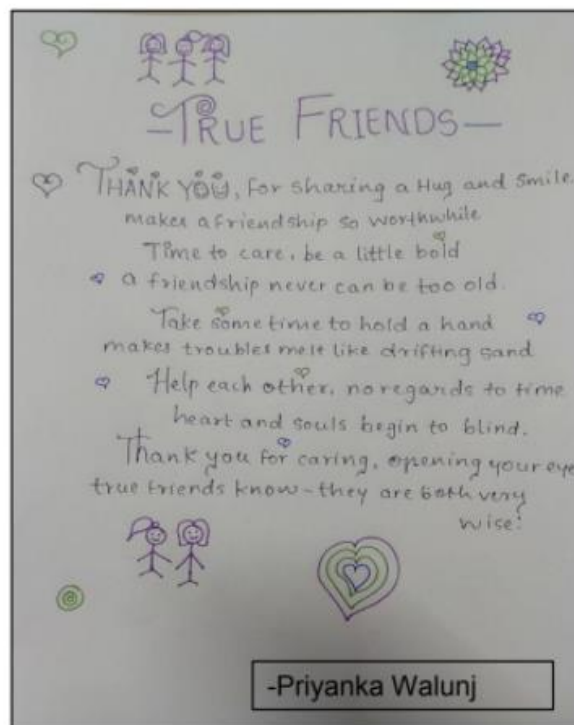 —TRUE FRIENDS—
THANK YOU, for sharing a Hug and Smile
makes a friendship so worthwhile
Time to care, be a little bold
a friendship never can be too old.
Take some time to hold a hand
makes troubles melt like drifting sand
Help each other, no regards to time
heart and souls begin to blind.
Thank you for caring, opening your eye
true friends know - they are both very
wise!
-Priyanka Walunj